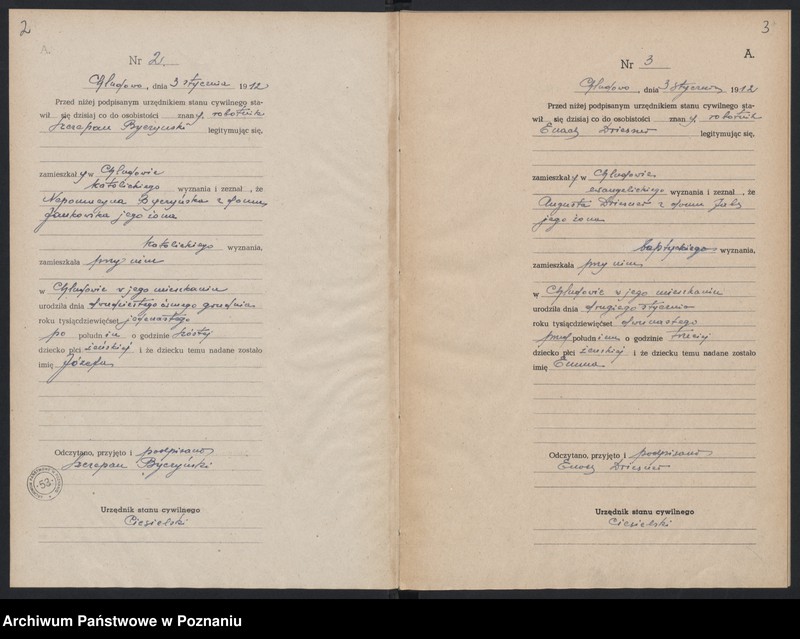 2
A.
Nr 2.
Chludowo, dnia 3 stycznia 1912
Przed niżej podpisanym urzędnikiem stanu cywilnego sta-
wił się dzisiaj co do osobistości znany, robotnik
Szczepan Byczyński legitymując się,
zamieszkały w Chludowie
katolickiego wyznania i zeznał, że
Nepomucyna Byczyńska z domu
Jankowska jego żona
katolickiego wyznania,
zamieszkała przy nim
w Chludowie w jego mieszkaniu
urodziła dnia dwudziestego ósmego grudnia
roku tysiącdziewięćset jedenastego
po południu o godzinie szóstej
dziecko płci żeńskiej i że dziecku temu nadane zostało
imię Józefa
Odczytano, przyjęto i podpisano
Szczepan Byczyński
53
Urzędnik stanu cywilnego
Ciesielski
3
A.
Nr 3
Chludowo, dnia 3 stycznia 1912
Przed niżej podpisanym urzędnikiem stanu cywilnego sta-
wił się dzisiaj co do osobistości znany, robotnik
Driesner legitymując się,
zamieszkały w Chludowie
ewangelickiego wyznania i zeznał, że
Augusta Driesner z domu
jego żona
wyznania,
zamieszkała przy nim
w Chludowie w jego mieszkaniu
urodziła dnia drugiego stycznia
roku tysiącdziewięćset dwunastego
przed południem o godzinie trzeciej
dziecko płci żeńskiej i że dziecku temu nadane zostało
imię Emma
Odczytano, przyjęto i podpisano
Driesner
Urzędnik stanu cywilnego
Ciesielski
Archiwum Państwowe w Poznaniu